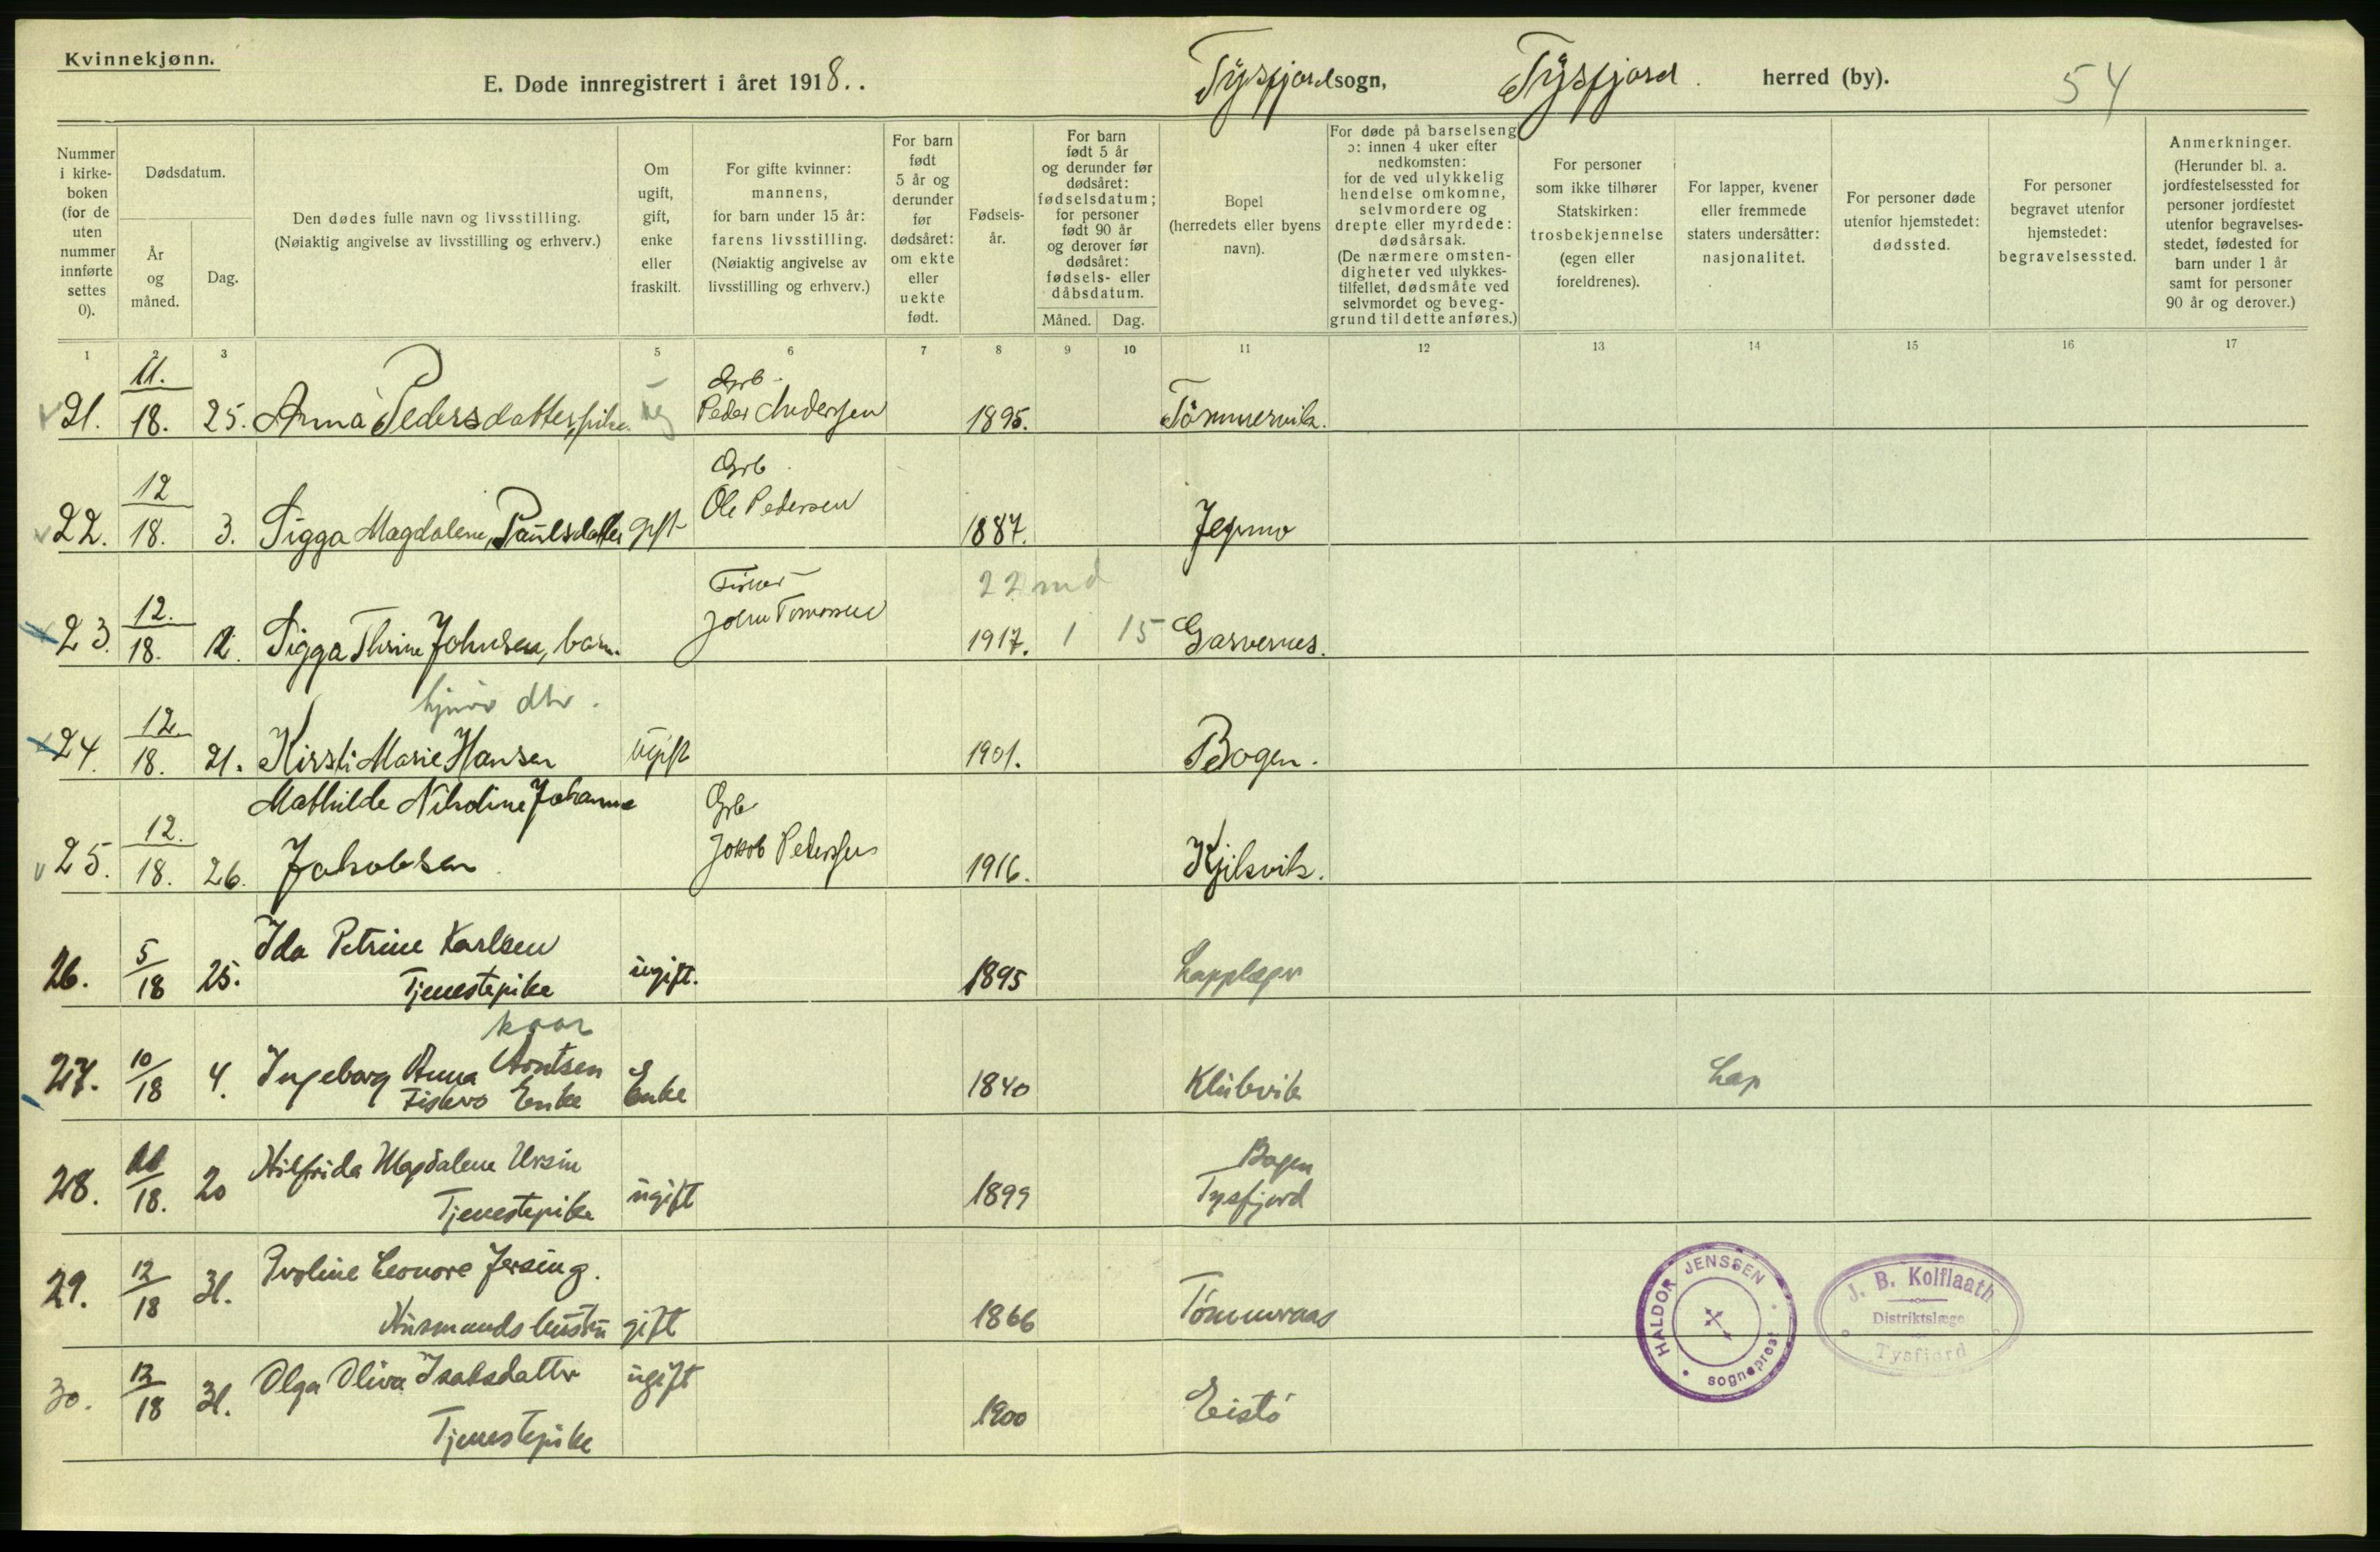 Kvinnekjønn.
E. Døde innregistrert i året 1918. .
Tysfjord sogn,
Tysfjord . herred (by).
54
Nummer i kirkeboken (for de uten nummer innførte settes 0).
Dødsdatum.
År og måned.
Dag.
Den dødes fulle navn og livsstilling.
(Nøiaktig angivelse av livsstilling og erhverv.)
Om ugift, gift, enke eller fraskilt.
For gifte kvinner: mannens, for barn under 15 år: farens livsstilling.
(Nøiaktig angivelse av livsstilling og erhverv.)
For barn født 5 år og derunder før dødsåret: om ekte eller uekte født.
Fødsels-år.
For barn født 5 år og derunder før dødsåret: fødselsdatum; for personer født 90 år og derover før dødsåret: fødsels- eller dåbsdatum.
Måned.
Dag.
Bopel
(herredets eller byens navn).
For døde på barselseng ɔ: innen 4 uker efter nedkomsten: for de ved ulykkelig hendelse omkomne, selvmordere og drepte eller myrdede: dødsårsak.
(De nærmere omstendigheter ved ulykkestilfellet, dødsmåte ved selvmordet og beveggrund til dette anføres.)
For personer som ikke tilhører Statskirken: trosbekjennelse (egen eller foreldrenes).
For lapper, kvener eller fremmede staters undersåtter: nasjonalitet.
For personer døde utenfor hjemstedet: dødssted.
For personer begravet utenfor hjemstedet: begravelsessted.
Anmerkninger.
(Herunder bl. a. jordfestelsessted for personer jordfestet utenfor begravelsesstedet, fødested for barn under 1 år samt for personer 90 år og derover.)
1 2 3 5 6 7 8 9 10 11 12 13 14 15 16 17
21. 11./18. 25. Anna Pedersdatter, pike. ug Grb. Peder Andersen 1895. Tømmervik.
22. 12/18. 3. Sigga Magdalene, Paulsdatter gift Grb. Ole Pedersen 1887. Jepmo
22 md
23. 12./18. 12. Sigga Thrine Johnsen, barn. Fisker John Tomassen 1917. 1 15 Garvernes.
24. 12./18. 21. Kirsti Marie Hansen ugift 1901. Bogen.
25. 12./18. 26. Mathilde Nikoline Johanne
Jakobsen Grb Jakob Pedersen 1916. Kjilsvik.
26. 5/18 25. Ida Petrine Karlsen
Tjenestepike ugift. 1895 Lapplæger
kaar
27. 10/18 4. Ingeborg Anna Arntsen
Fiskers Enke Enke 1840 Klubvik Lap
28. 11/18. 20 Hilfrida Magdalene Ursin
Tjenestepike ugift 1899 Bogen Tysfjord
29. 12/18 31. Proline Leonore Jersing.
Husmands hustru gift 1866 Tømmeraas
30. 12/18 31. Olga Oliva Isaksdatter
Tjenestepike ugift 1900 Eistø
HALDOR JENSSEN
sogneprest
J. B. Kolflaath
Distriktslæge
Tysfjord